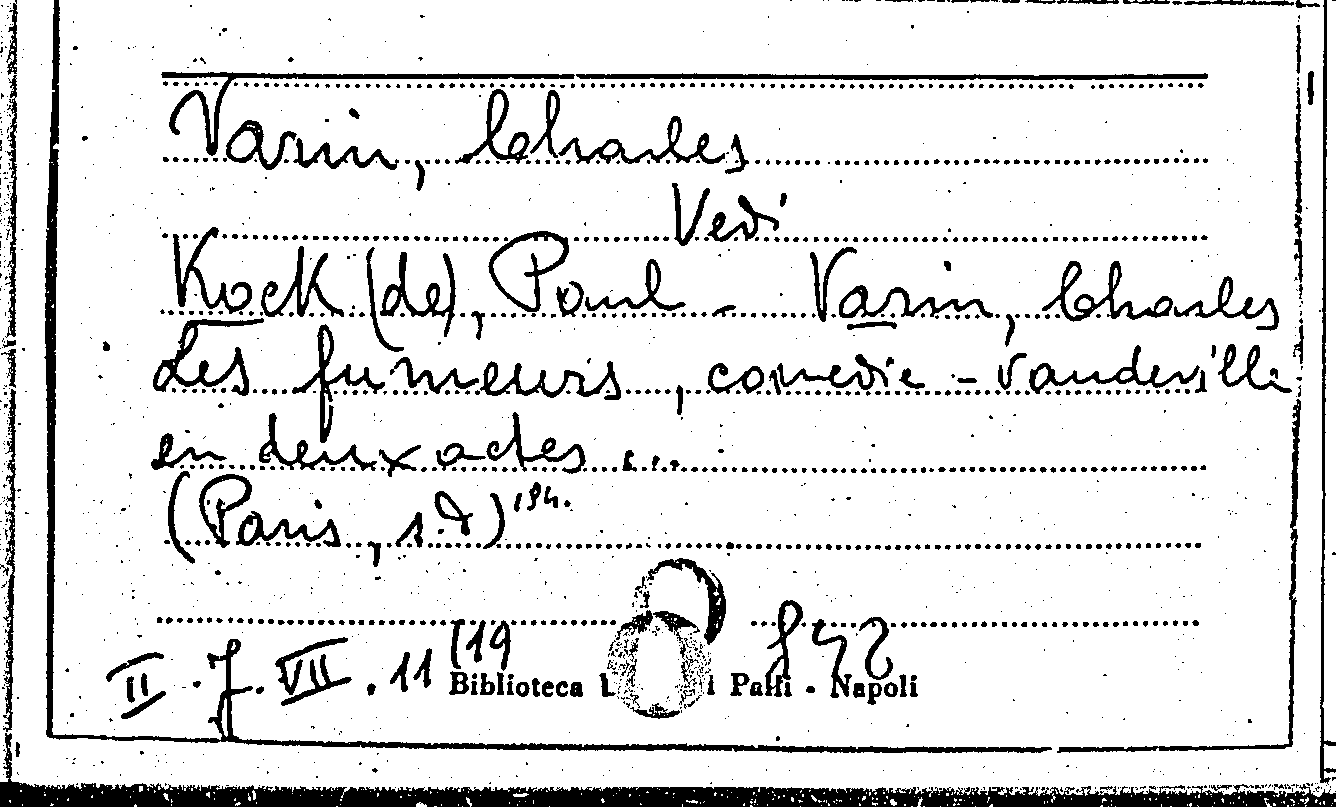 Varin, Charles
Vedi
Kock (de), Paul - Varin, Charles
Les fumeurs, comedie - vaudeville
en deux actes ...
(Paris, s.d)194.
II. J. VII. 11 (19
Biblioteca i Palli - Napoli